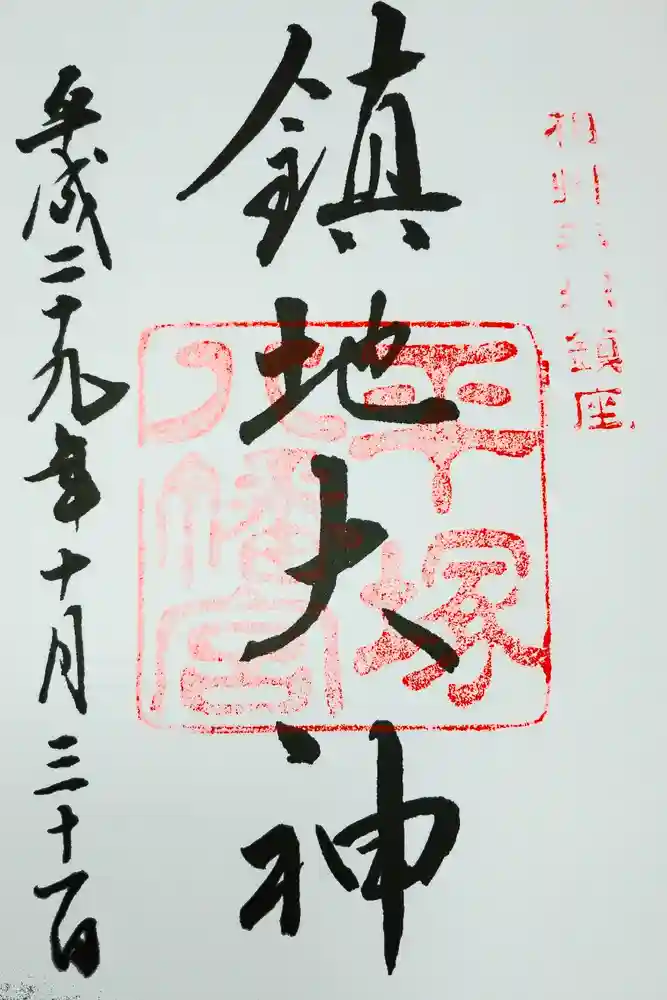 相州平塚鎮座
鎮地大神
平塚
八幡宮
平成二十九年十月三十一日